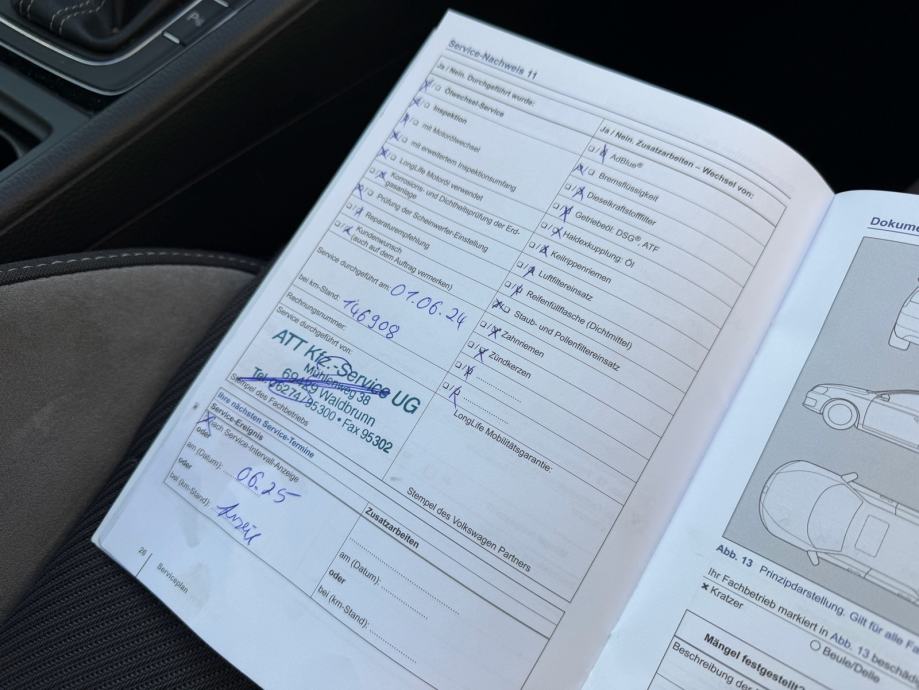 P
Service-Nachweis 11
Ja / Nein, Durchgeführt wurde:
Ölwechsel-Service
Inspektion
mit Motorölwechsel
mit erweitertem Inspektionsumfang
LongLife Motoröl verwendet
Korrosions- und Dichtheitsprüfung der Erd-
gasanlage
Prüfung der Scheinwerfer-Einstellung
Reparaturempfehlung
Kundenwunsch
(auch auf dem Auftrag vermerken)
Service durchgeführt am: 01.06.24
bei km-Stand: 146908
Rechnungsnummer:
Service durchgeführt von:
ATT Kfz.-Service UG
Mühlenweg 38
69429 Waldbrunn
Tel. 06274/95300 • Fax 95302
Stempel des Fachbetriebs
Ja / Nein, Zusatzarbeiten – Wechsel von:
AdBlue®
Bremsflüssigkeit
Dieselkraftstofffilter
Getriebeöl: DSG®, ATF
Haldexkupplung: Öl
Keilrippenriemen
Luftfiltereinsatz
Reifenfüllflasche (Dichtmittel)
Staub- und Pollenfiltereinsatz
Zahnriemen
Zündkerzen
LongLife Mobilitätsgarantie:
Stempel des Volkswagen Partners
Ihre nächsten Service-Termine
Service-Ereignis
nach Service-Intervall-Anzeige
oder
am (Datum): 06.25
oder
bei (km-Stand):
Zusatzarbeiten
am (Datum):
oder
bei (km-Stand):
26
Serviceplan
Dokume
Abb. 13 Prinzipdarstellung: Gilt für alle Fa
Ihr Fachbetrieb markiert in Abb. 13 beschäd
× Kratzer
Beule/Delle
Mängel festgestellt?
Beschreibung der